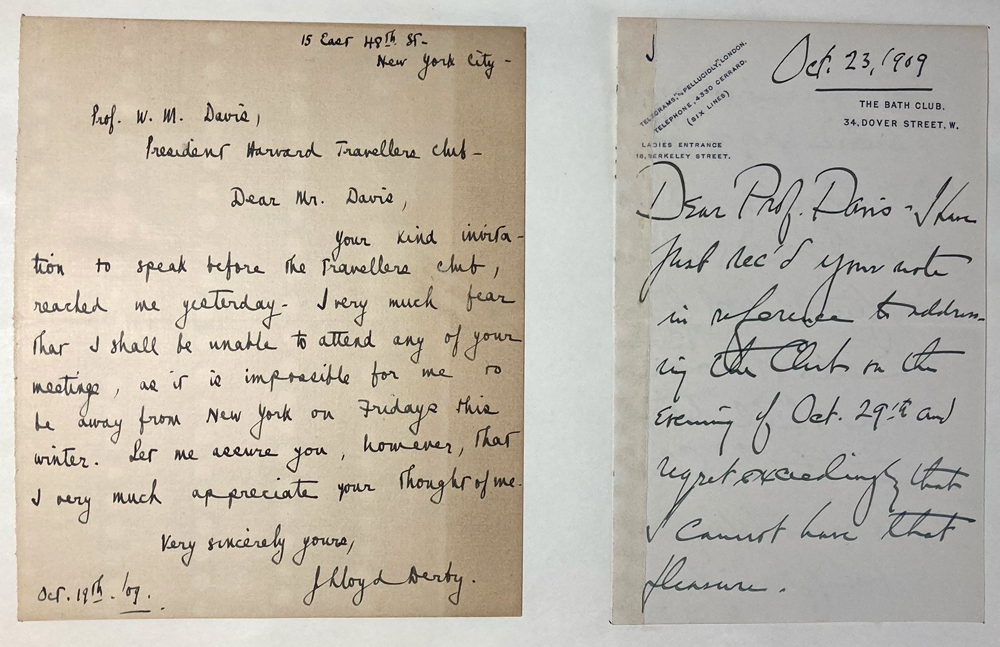 15 East 48th St-
New York City-
Prof. W. M. Davis,
President Harvard Travellers Club-
Dear Mr. Davis,
Your kind invita-
tion to speak before the Travellers Club,
reached me yesterday- I very much fear
that I shall be unable to attend any of your
meetings, as it is impossible for me to
be away from New York on Fridays this
winter. Let me assure you, however, that
I very much appreciate your thought of me-
Very sincerely yours,
J Lloyd Derby.
Oct. 19th. '09.
Oct. 23, 1909
TELEGRAMS, "PELLUCIDLY, LONDON.
TELEPHONE, 4330 GERRARD.
(SIX LINES)
THE BATH CLUB.
34, DOVER STREET, W.
LADIES ENTRANCE
BERKELEY STREET.
Dear Prof. Davis - I have
just rec'd your note
in reference to address-
ing the Club on the
evening of Oct. 29th and
regret exceedingly that
I cannot have that
pleasure.